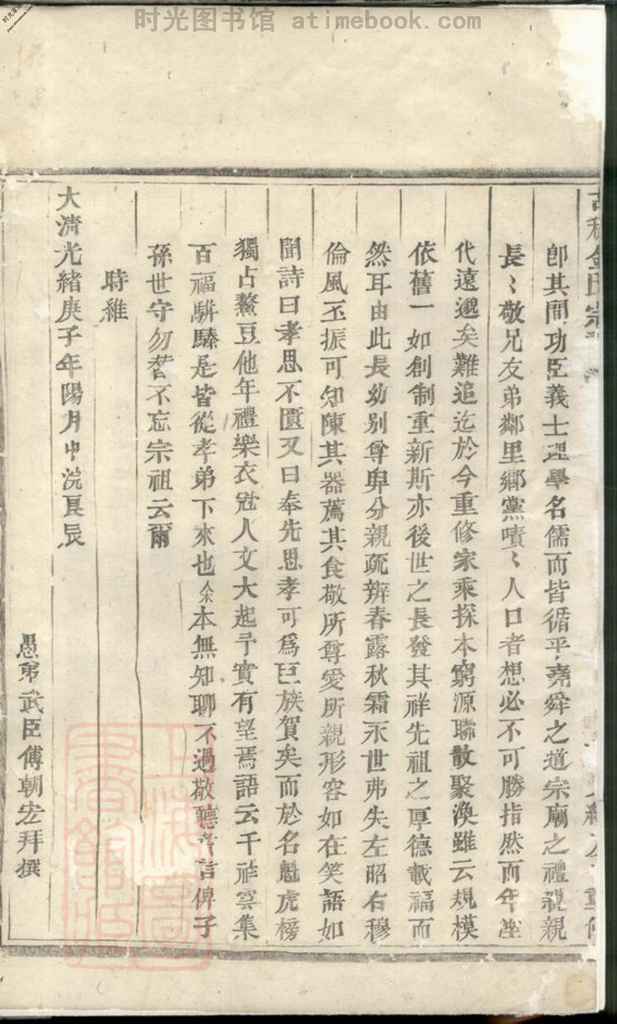 时光图书馆 atimebook.com
卽其間功臣義士理學名儒而皆循乎堯舜之道宗廟之禮親親
長〻敬兄友弟鄰里鄉黨嘖〻人口者想必不可勝指然而年湮
代遠邈矣難追迄於今重修家乘探本窮源聯散聚渙雖云規模
依舊一如創制重新斯亦後世之長發其祥先祖之厚德載福而
然耳由此長幼別尊卑分親疏辨春露秋霜永世弗失左昭右穆
倫風丕振可知陳其器薦其食敬所尊愛所親形容如在笑語如
聞詩曰孝思不匱又曰奉先思孝可爲巨族賀矣而於名魁虎榜
獨占鰲豆他年禮樂衣冠人文大起予實有望焉語云千祥雲集
百福駢臻是皆從孝弟下來也余本無知聊不過敬聽言俾子
孫世守勿替不忘宗祖云爾
時維
大清光緒庚子年陽月中浣良辰
愚弟武臣傅朝宏拜撰